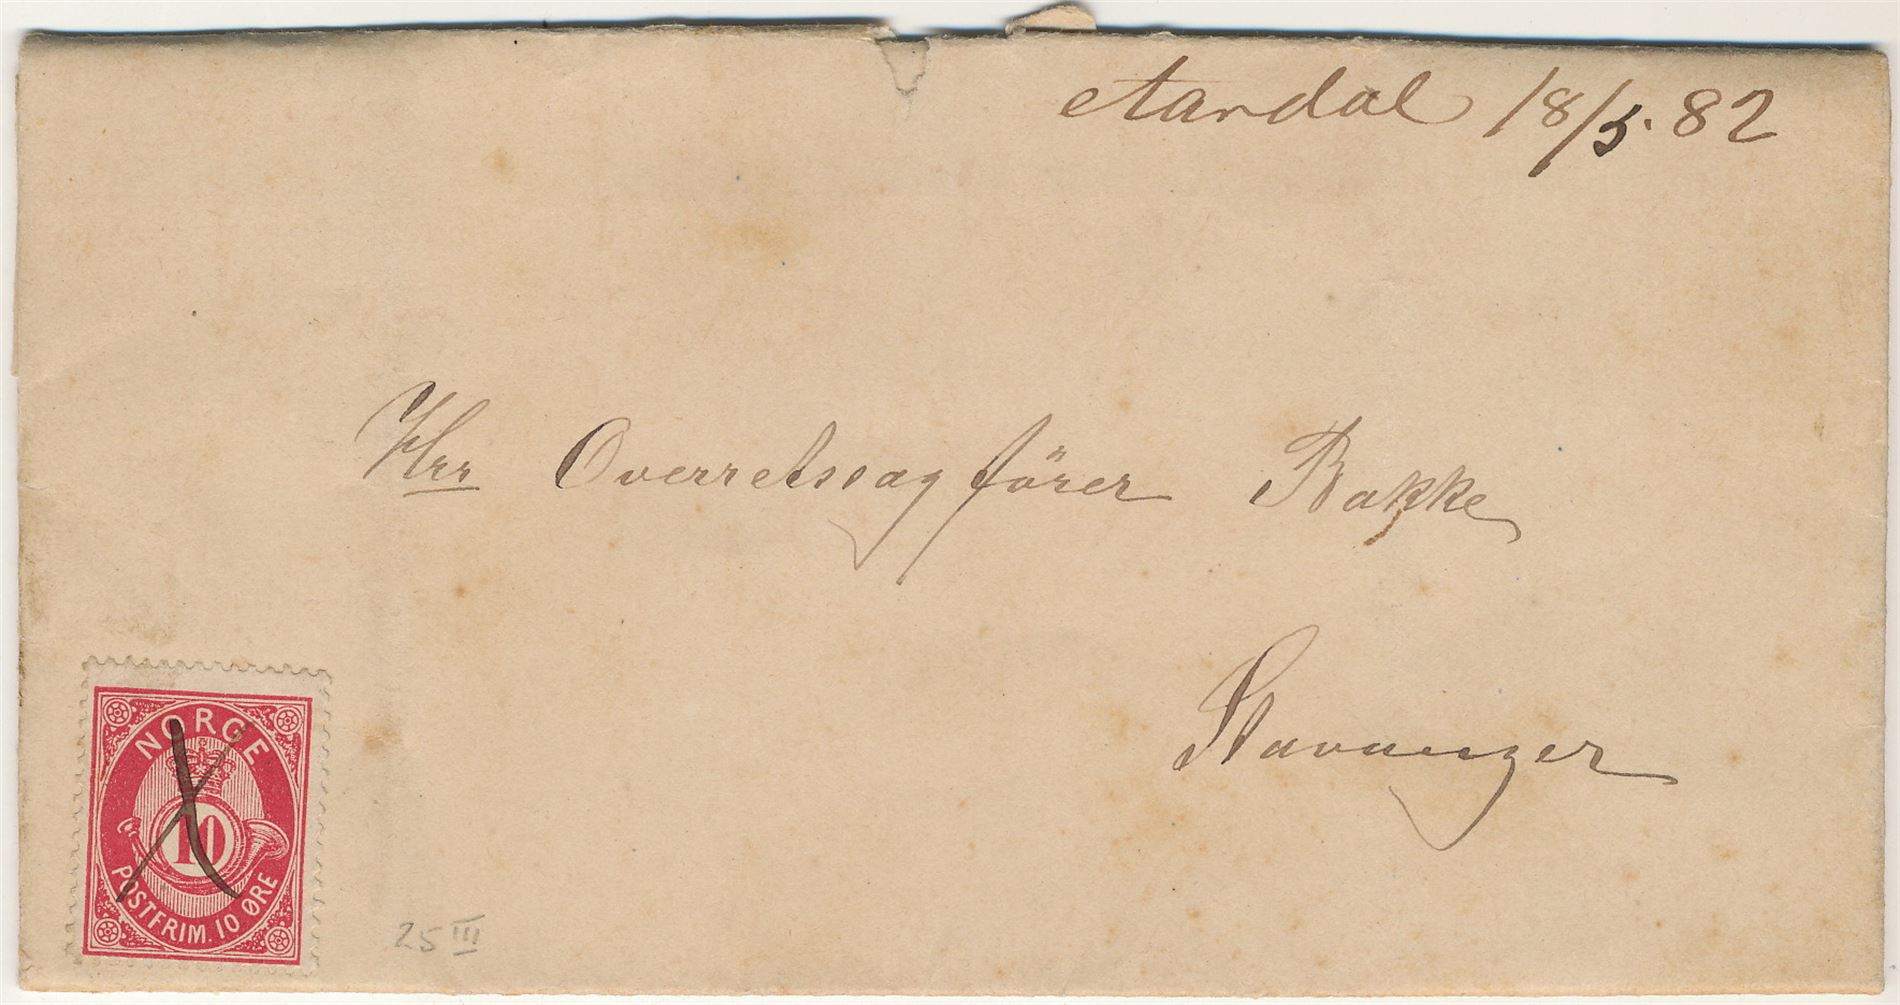 Aardal 18/5. 82
Hrr Overretssagförer Bakke
Stavanger
NORGE
10
POSTFRIM. 10 ØRE
25 III